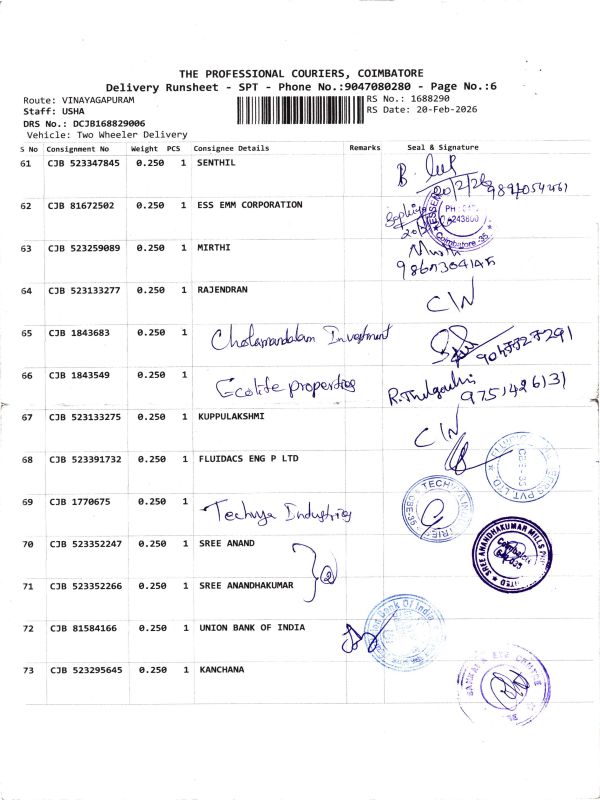 THE PROFESSIONAL COURIERS, COIMBATORE
Delivery Runsheet - SPT - Phone No.:9047080280 - Page No.:6
Route: VINAYAGAPURAM
RS No.: 1688290
Staff: USHA
RS Date: 20-Feb-2026
DRS No.: DCJB168829006
Vehicle: Two Wheeler Delivery
S No Consignment No Weight PCS Consignee Details Remarks Seal & Signature
61 CJB 523347845 0.250 1 SENTHIL
B.
20/2/26
62 CJB 81672502 0.250 1 ESS EMM CORPORATION
Coimbatore-35
63 CJB 523259089 0.250 1 MIRTHI
64 CJB 523133277 0.250 1 RAJENDRAN
C/N
65 CJB 1843683 0.250 1 Cholamandalam Investment
66 CJB 1843549 0.250 1 Ecolife properties
9751426131
67 CJB 523133275 0.250 1 KUPPULAKSHMI
C/N
68 CJB 523391732 0.250 1 FLUIDACS ENG P LTD
CBE-35
69 CJB 1770675 0.250 1 Techya Industries
70 CJB 523352247 0.250 1 SREE ANAND
SREE ANANDHAKUMAR MILLS
Coimbatore
71 CJB 523352266 0.250 1 SREE ANANDHAKUMAR
2
72 CJB 81584166 0.250 1 UNION BANK OF INDIA
Bank Of India
73 CJB 523295645 0.250 1 KANCHANA
EYE CENTRE